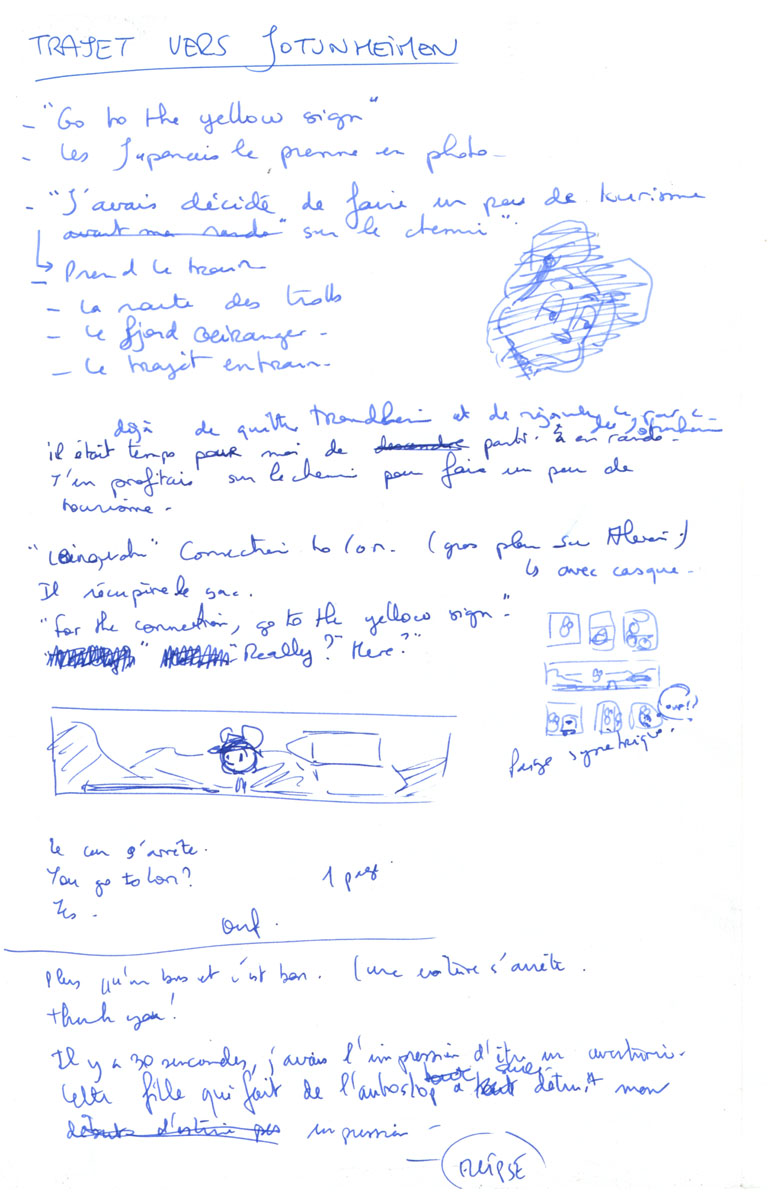 TRAJET VERS JOTUNHEIMEN
- "Go to the yellow sign"
- Les Japonais le prenne en photo -
- "J'avais décidé de faire un peu de tourisme
avant ma rando" sur le chemin".
↳ Prend le train
- La route des trolls
- Le fjord Geiranger -
- Le trajet en train -
déjà de quitter Trondheim et de rejoindre le parc
des Jotunheim
il était temps pour moi de descendre partir à en rando -
J'en profitais sur le chemin pour faire un peu de
tourisme -
Connection to Lom. (gros plan sur
↳ avec casque -
Il récupère le sac.
"For the connection, go to the yellow sign" -
"Really? Here?"
Ouf!
Page symétrique.
Le car s'arrête.
You go to Lom? 1 page
Yes -
Ouf.
Plus qu'un bus et c'est bon. (une voiture s'arrête.
Thank you!
Il y a 30 secondes, j'avais l'impression d'être un aventurier.
Cette fille qui fait de l'autostop tout seule a tout détruit mon
impression -
- ELLIPSE